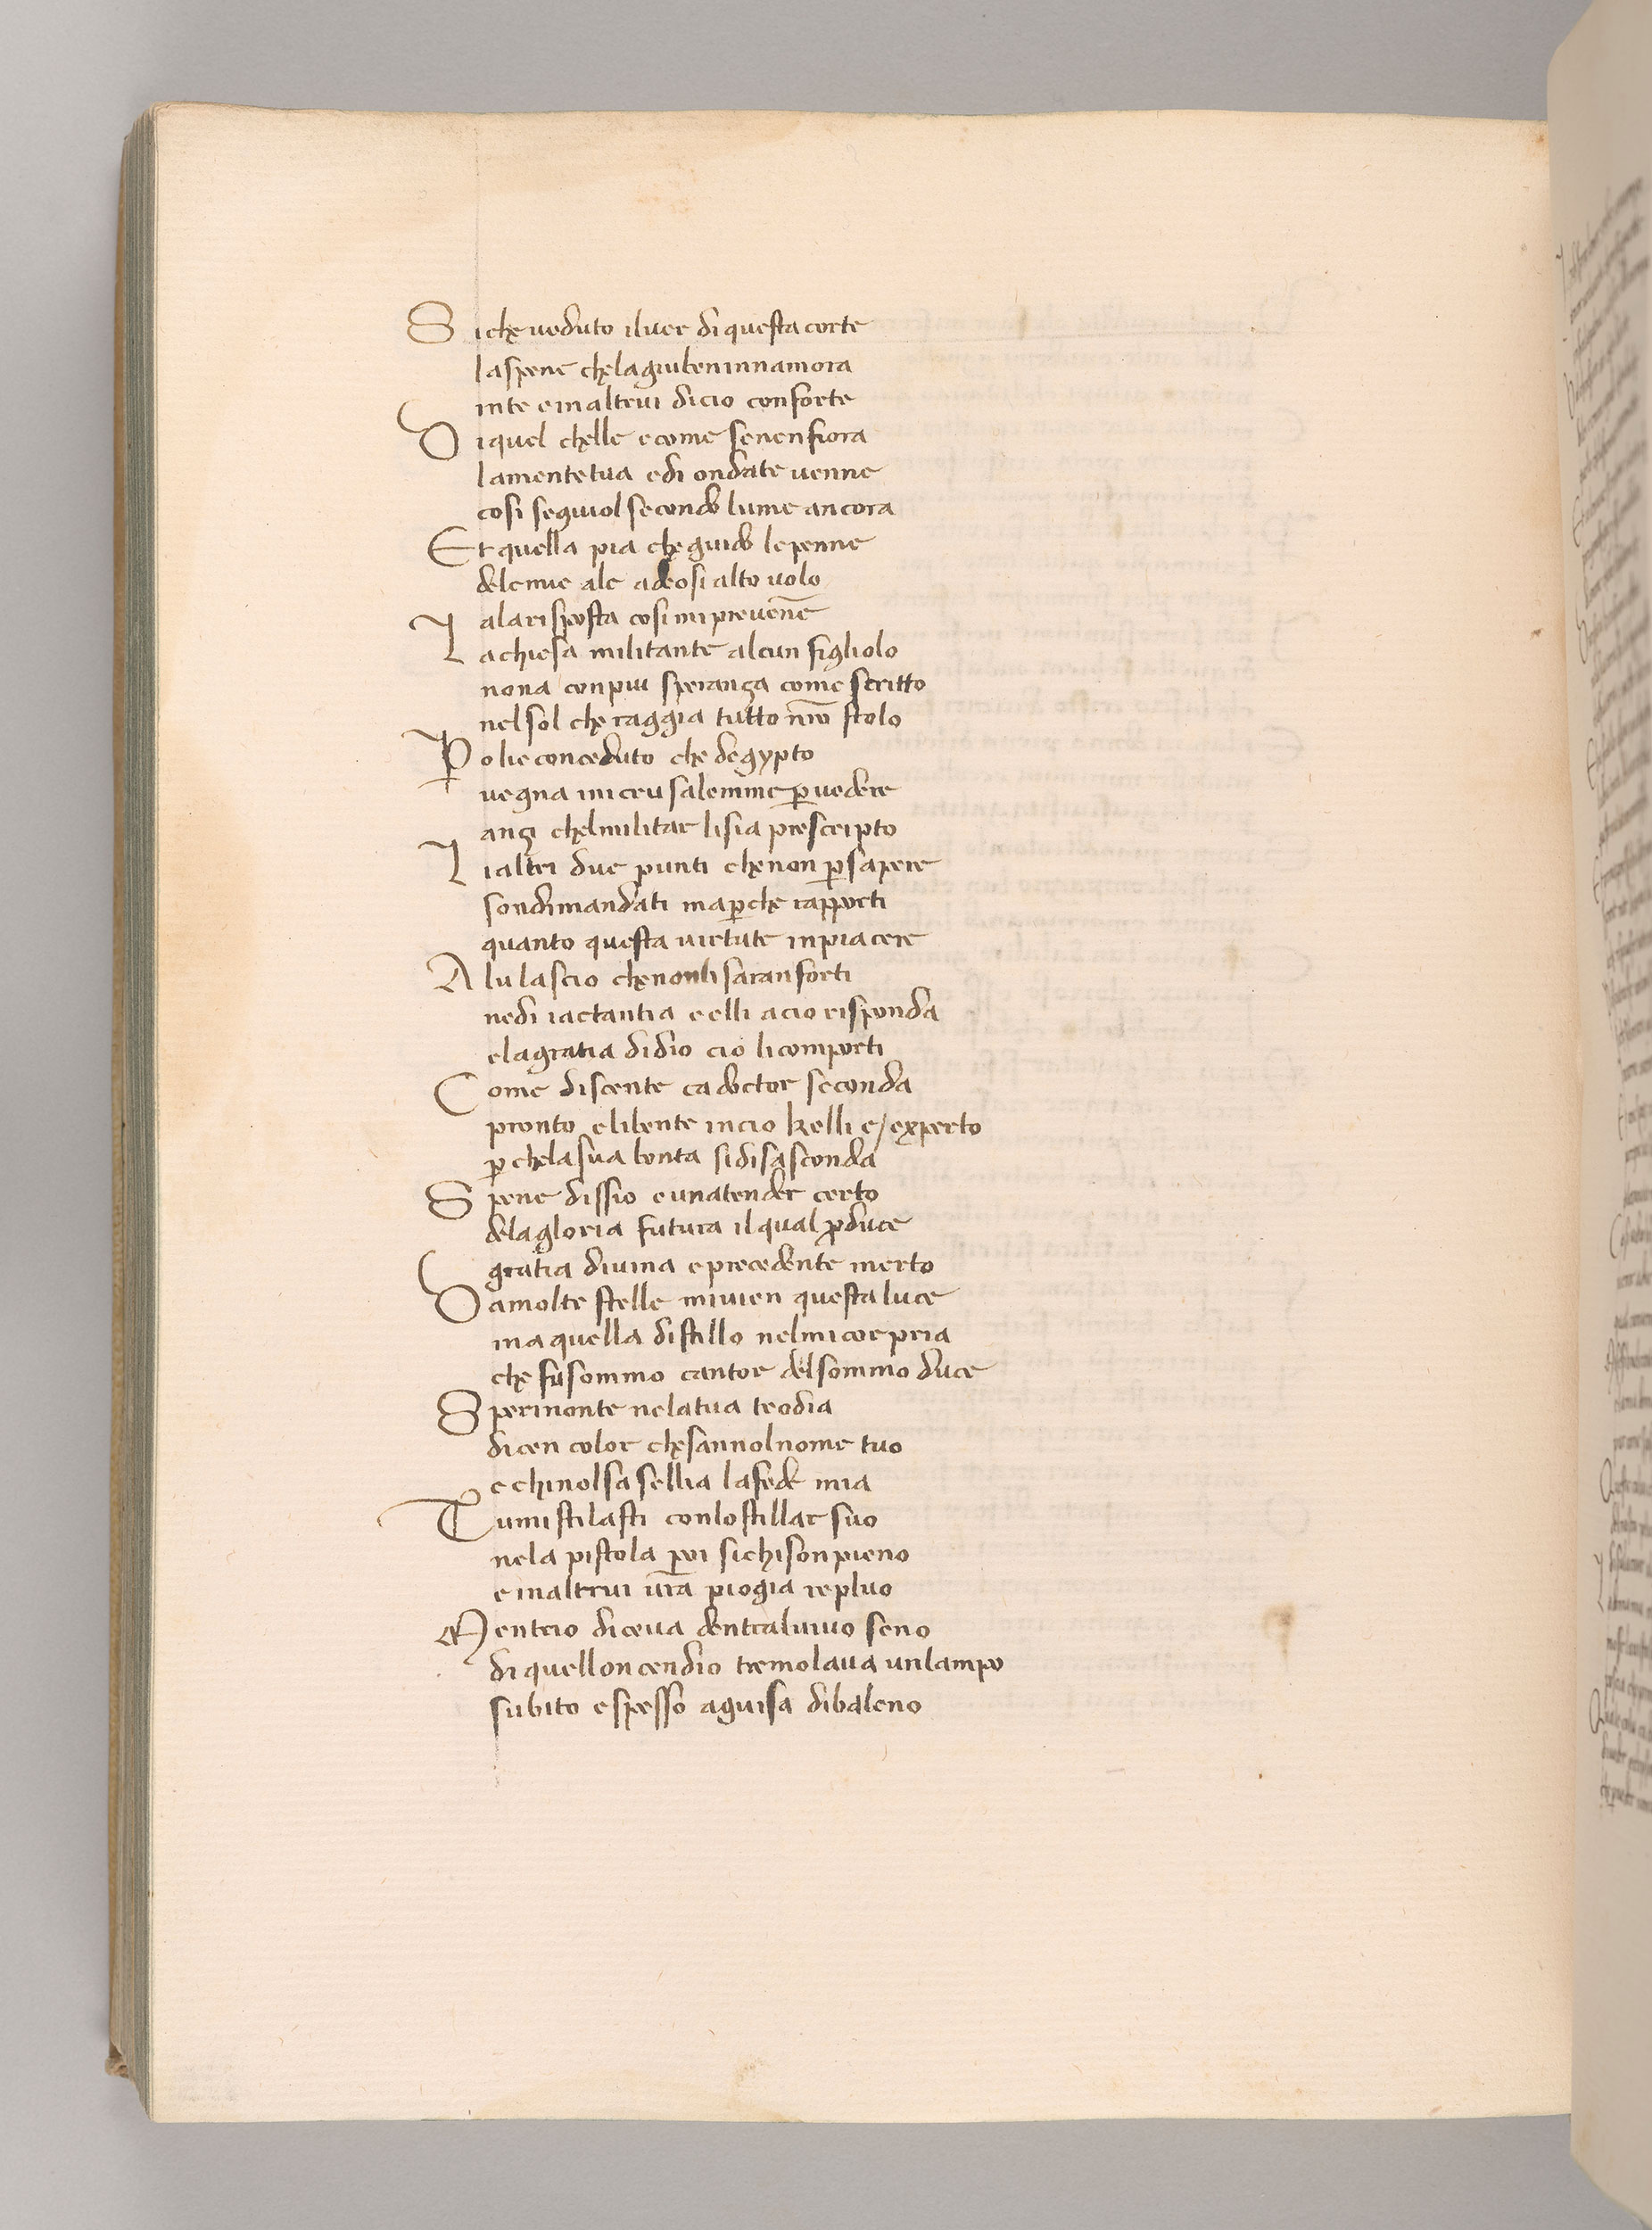 Siche ueduto iluer di questa corte
laspene chelagiubeninnamora
inte einaltrui dicio conforte
Diquel chelle ecome senenfiora
lamentetua edi ondate uenne
cosi seguiol secondo lume ancora
Et quella pia che guido lepenne
delemie ale adcosi alto uolo
alarisposta cosi mi preuenne̅
La chiesa militante alcun figliolo
nona conpiu speranza come scritto
nelsol che raggia tutto nr̅o stolo
Polie conceduto che degypto
uegna inierusalemme p̱ uedere
anzi chelmilitar lisia prescripto
Lialtri due punti chenon p̱ sapere
sondimandati map̱che rapporti
quanto questa uirtute inpiacere
Alu lascio chenonli saranforti
nedi iactantia eelli acio risponda
elagratia didio cio licomporti
Come discente ca doctor seconda
pronto elibente incio kelli e/experto
p̱ chelasua bonta sidisasconda
Spene dissio eunatender certo
delagloria futura ilqual produce
gratia diuina eprecedente merto
Damolte stelle miuien questaluce
ma quella distillo nelmicorpria
che fusommo cantor delsommo duce
Sperinonte nelatua teodia
dicen color chesannolnome tuo
echinolsa sellia lafede mia
Tumistilasti conlostillar suo
nela pistola poi sichisonpieno
einaltrui ur̅a piogia repluo
Mentrio diceua dentraluiuo seno
di quelloncendio tremolaua unlampo
subito espesso aguisa dibaleno